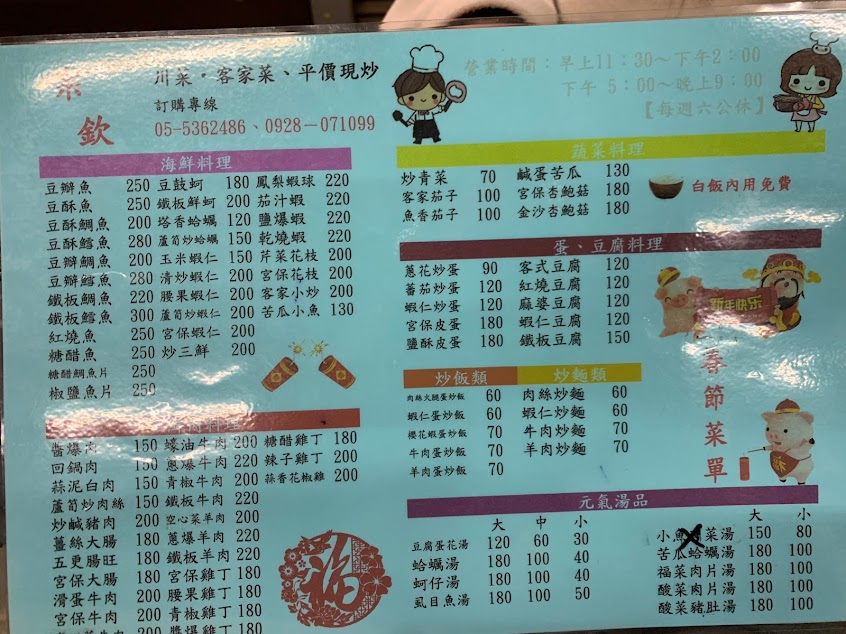 欽
川菜・客家菜、平價現炒
訂購專線
05-5362486、0928－071099
營業時間：早上11：30～下午2：00
下午 5：00～晚上9：00
【每週六公休】
海鮮料理
豆瓣魚 250 豆鼓蚵 180 鳳梨蝦球 220
豆酥魚 250 鐵板鮮蚵 200 茄汁蝦 220
豆酥鯛魚 200 塔香蛤蠣 120 鹽爆蝦 220
豆酥鱈魚 280 蘆筍炒蛤蠣 150 乾燒蝦 220
豆瓣鯛魚 200 玉米蝦仁 150 芹菜花枝 200
豆瓣鱈魚 280 清炒蝦仁 200 宮保花枝 200
鐵板鯛魚 220 腰果蝦仁 200 客家小炒 200
鐵板鱈魚 300 蘆筍炒蝦仁 200 苦瓜小魚 130
紅燒魚 250 宮保蝦仁 200
糖醋魚 250 炒三鮮 200
糖醋鯛魚片 250
椒鹽魚片 250
料理
醬爆肉 150 蠔油牛肉 200 糖醋雞丁 180
回鍋肉 150 蔥爆牛肉 220 辣子雞丁 200
蒜泥白肉 150 青椒牛肉 200 蒜香花椒雞 200
蘆筍炒肉絲 150 鐵板牛肉 220
炒鹹豬肉 200 空心菜羊肉 200
薑絲大腸 180 蔥爆羊肉 220
五更腸旺 180 鐵板羊肉 220
宮保大腸 180 宮保雞丁 180
滑蛋牛肉 200 腰果雞丁 180
宮保牛肉 200 青椒雞丁 180
牛肉 200 醬爆雞丁 180
福
蔬菜料理
炒青菜 70 鹹蛋苦瓜 130
客家茄子 100 宮保杏鮑菇 180
魚香茄子 100 金沙杏鮑菇 180
白飯內用免費
蛋、豆腐料理
蔥花炒蛋 90 客式豆腐 120
蕃茄炒蛋 120 紅燒豆腐 120
蝦仁炒蛋 120 麻婆豆腐 120
宮保皮蛋 180 蝦仁豆腐 120
鹽酥皮蛋 180 鐵板豆腐 150
新年快乐
春節菜單
炒飯類 炒麵類
肉絲火腿蛋炒飯 60 肉絲炒麵 60
蝦仁蛋炒飯 60 蝦仁炒麵 60
櫻花蝦蛋炒飯 70 牛肉炒麵 70
牛肉蛋炒飯 70 羊肉炒麵 70
羊肉蛋炒飯 70
元氣湯品
大 中 小 大 小
豆腐蛋花湯 120 60 30 小魚菜湯 150 80
蛤蠣湯 180 100 40 苦瓜蛤蠣湯 180 100
蚵仔湯 180 100 40 福菜肉片湯 180 100
虱目魚湯 180 100 50 酸菜肉片湯 180 100
酸菜豬肚湯 180 100